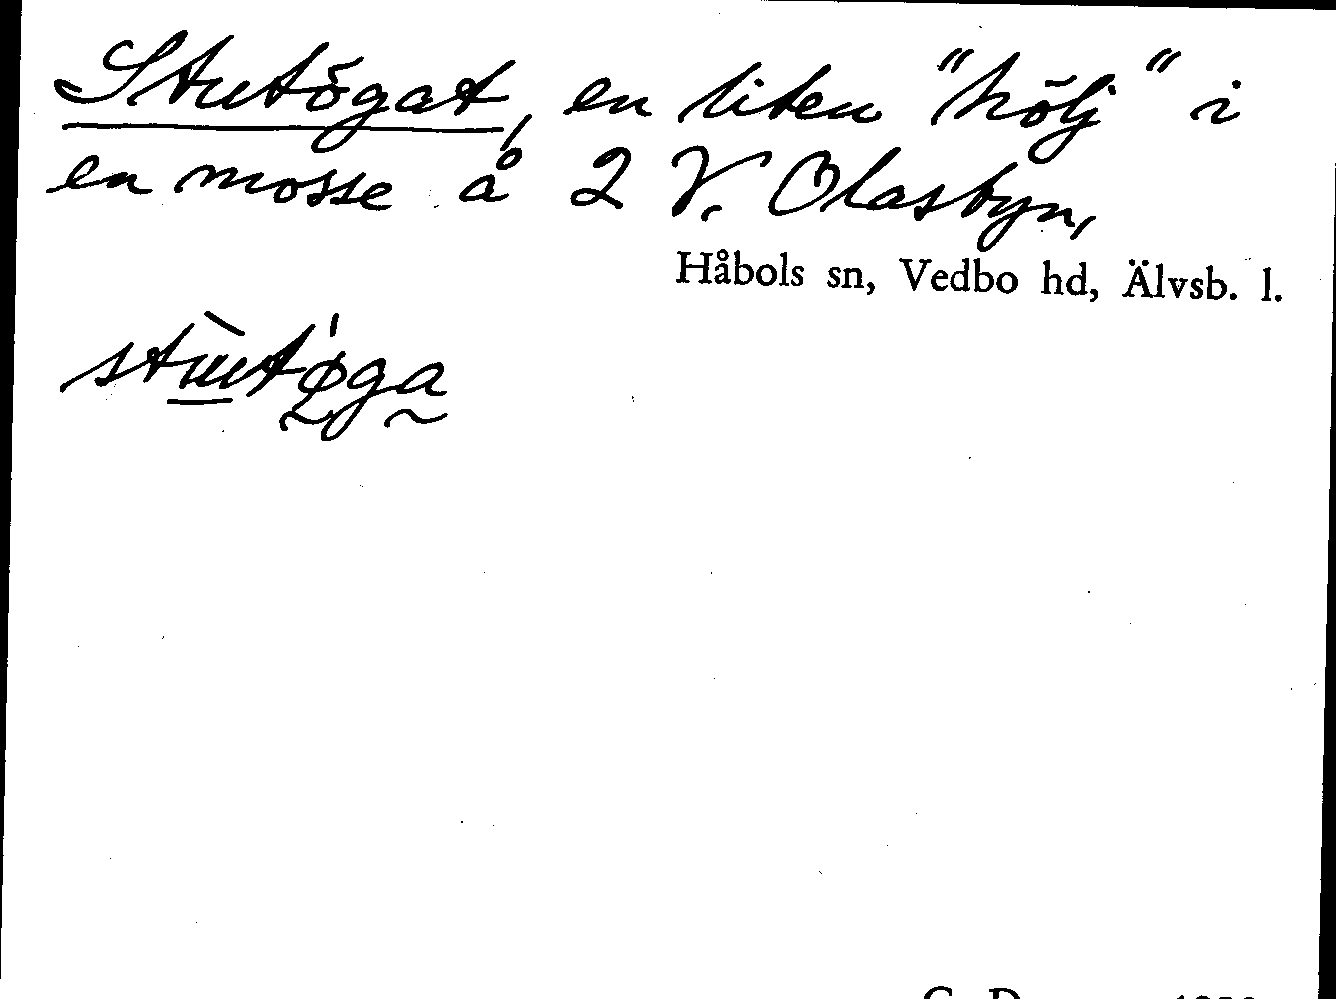 Stutögat, en liten "hölj" i
en mosse å 2 V. Olasbyn,
Håbols sn, Vedbo hd, Älvsb. l.